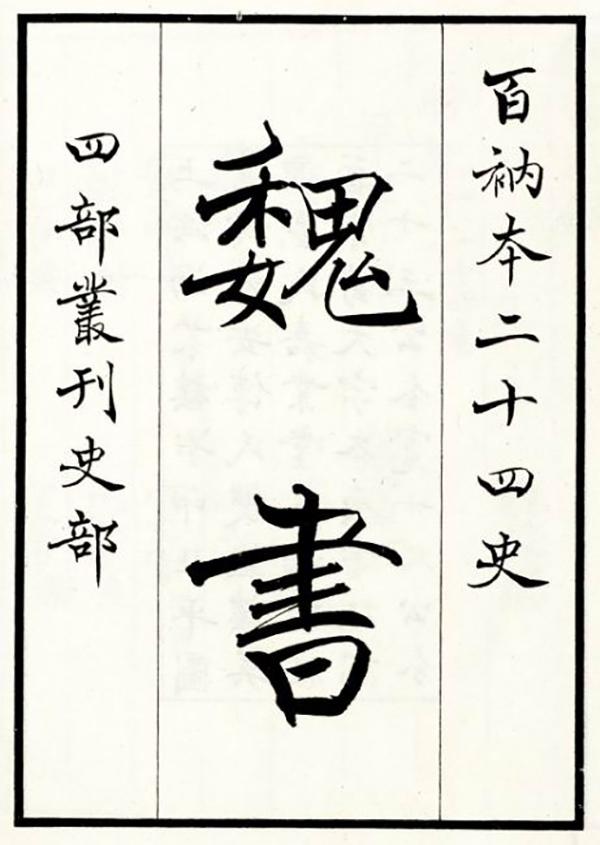 百衲本二十四史
魏書
四部叢刊史部